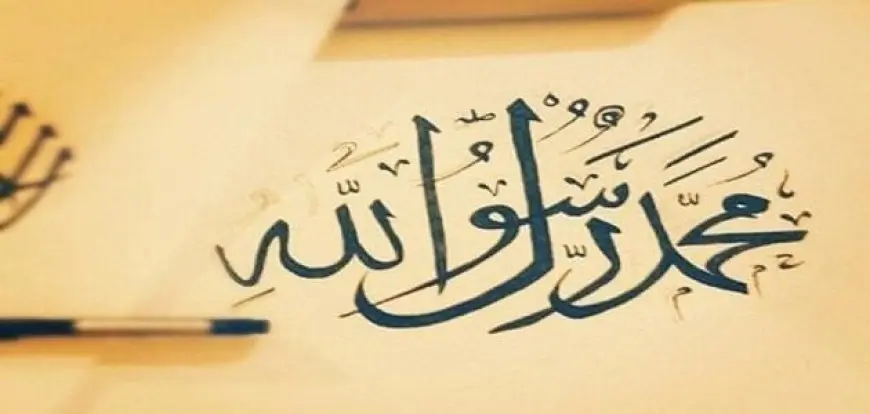 مُحَمَّدٌ رَّسُوْلُ اللَّهِ